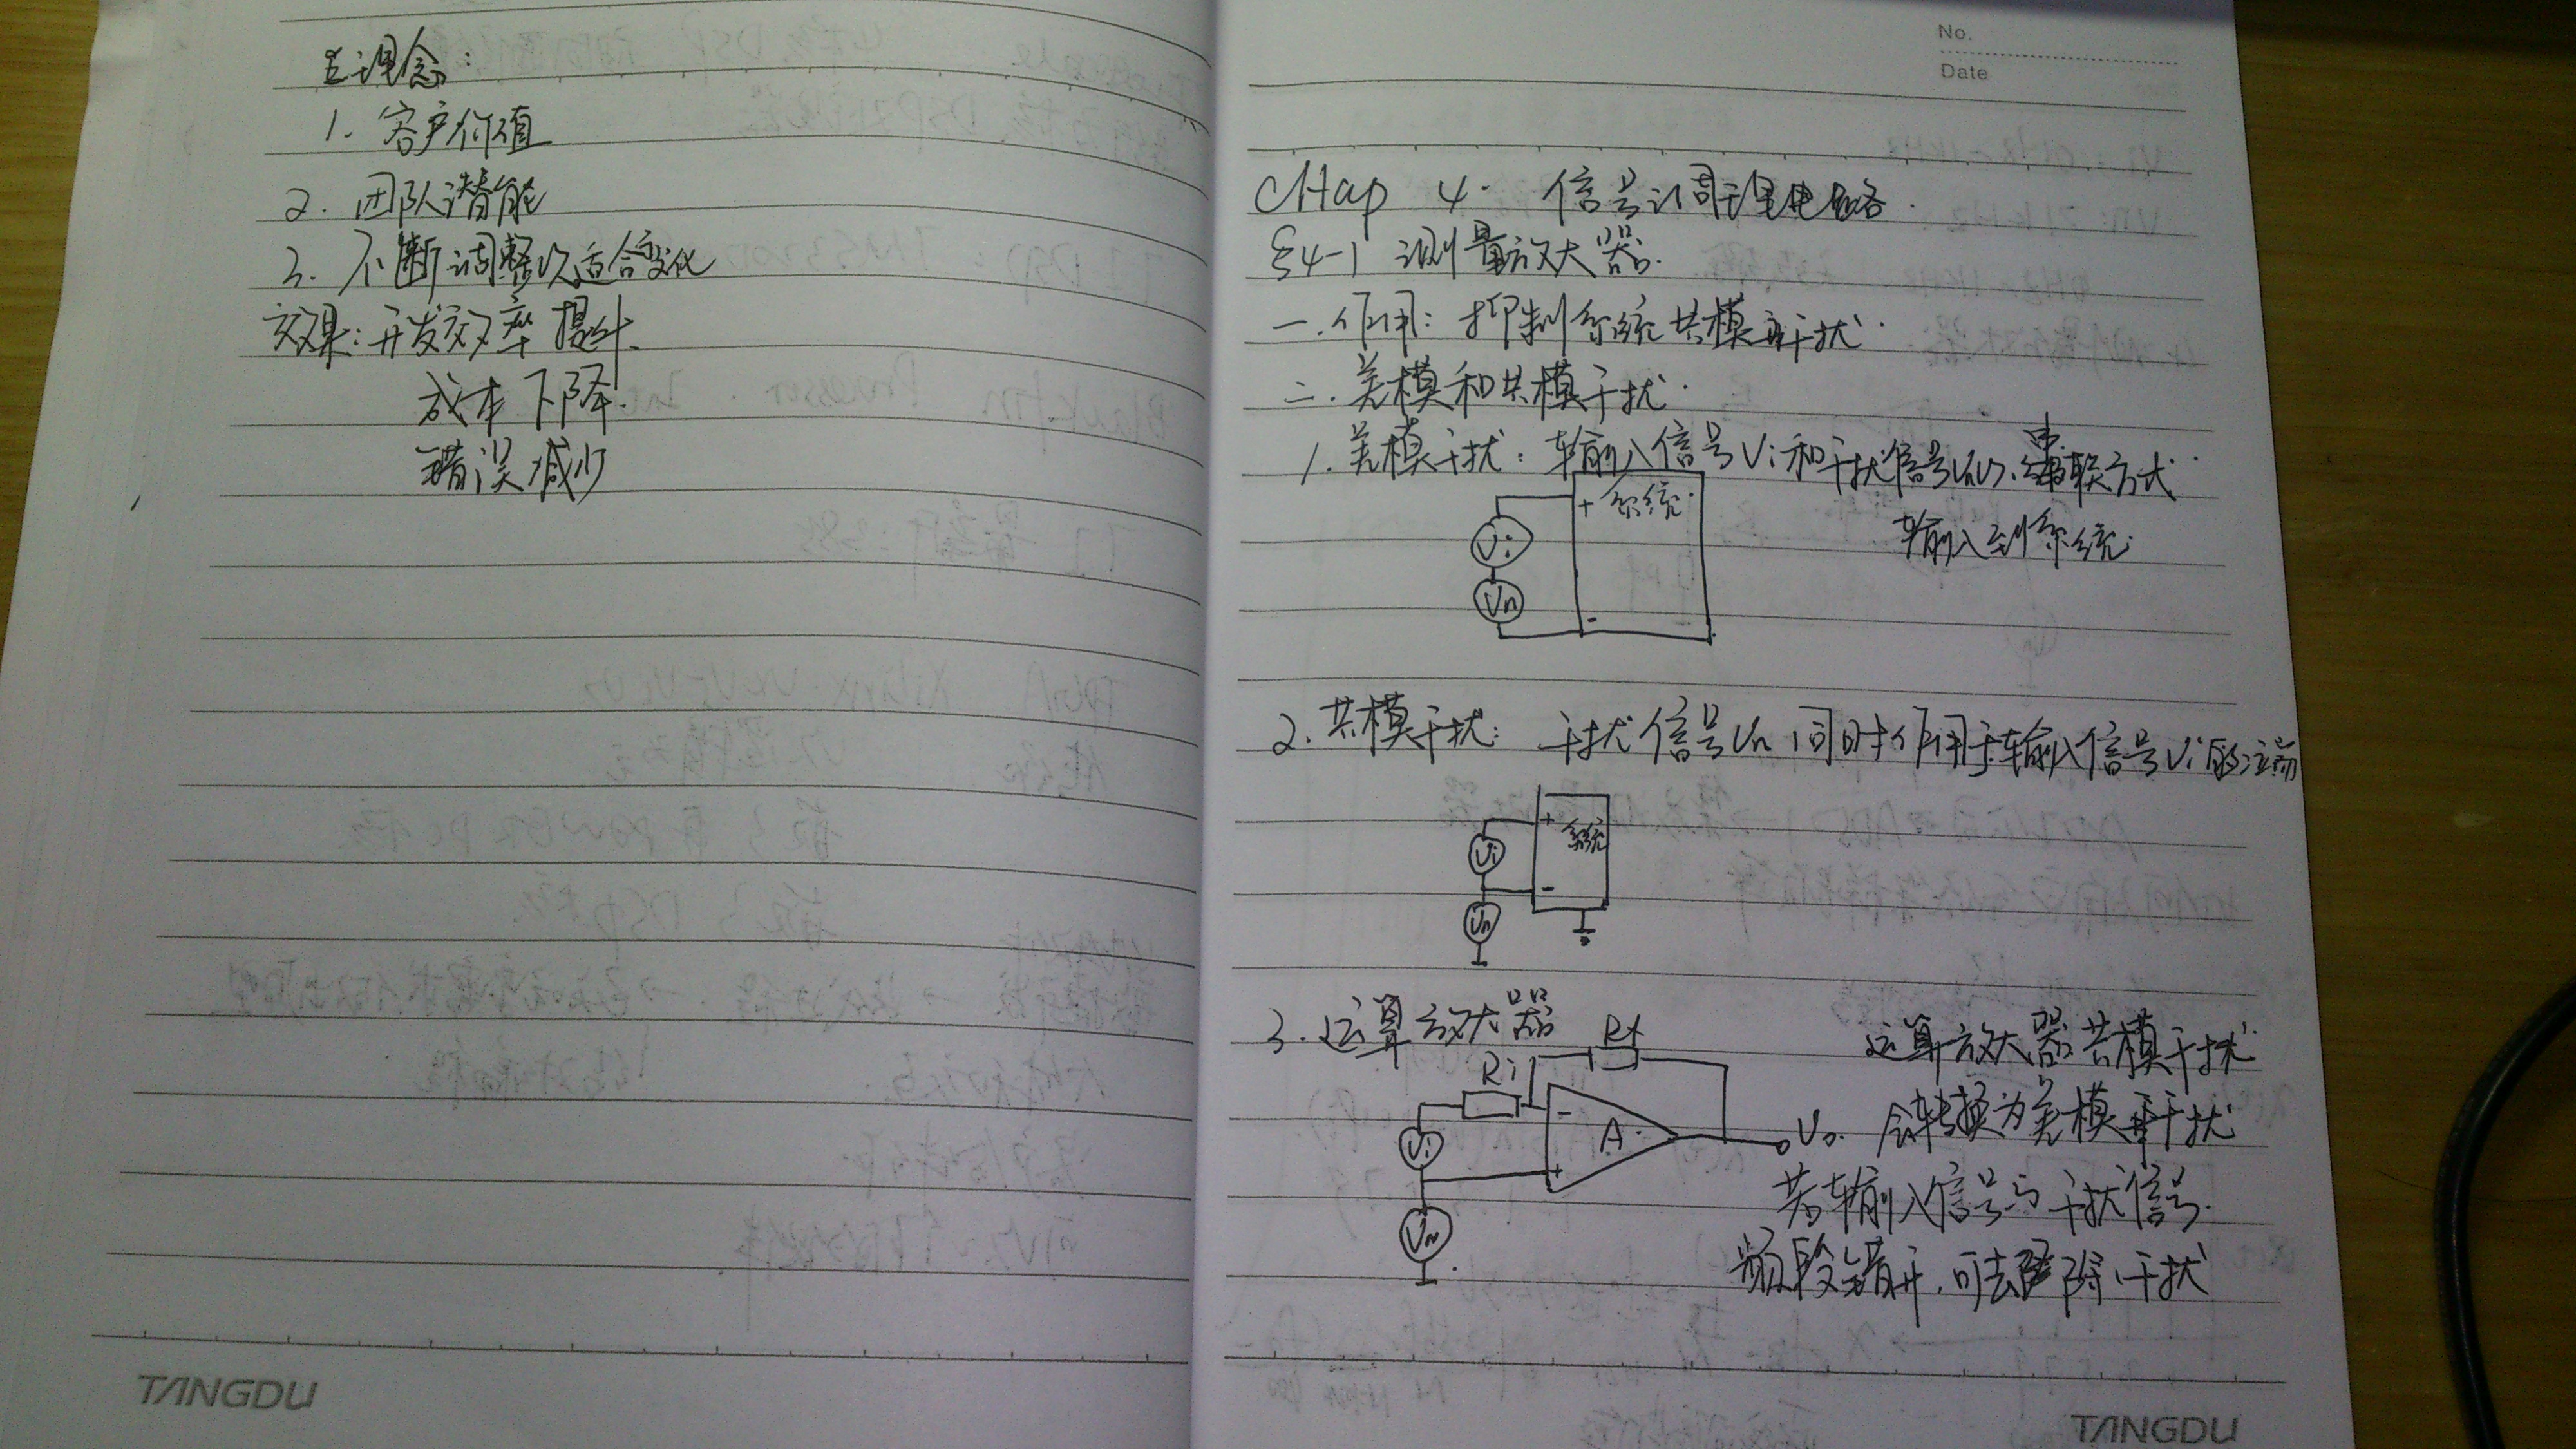 主理念：
1. 客户价值
2. 团队潜能
3. 不断调整以适合变化
效果：开发效率提升
成本下降.
错误减少
TANGDU
No.
Date
CHap 4. 信号调理电路.
§4-1 测量放大器.
一.作用：抑制系统共模干扰.
二.差模和共模干扰.
1. 差模干扰：输入信号Vi和干扰信号Vn以串联方式
输入到系统.
+ 系统
Vi
Vn
-
2. 共模干扰： 干扰信号Vn同时作用于输入信号Vi的
+
系统
Vi
-
Vn
3. 运算放大器
Rf
Ri
-
A.
Vi
+
Vo.
Vn
运算放大器共模干扰
会转换为差模干扰
若输入信号与干扰信号.
频段错开，可去除干扰
TANGDU